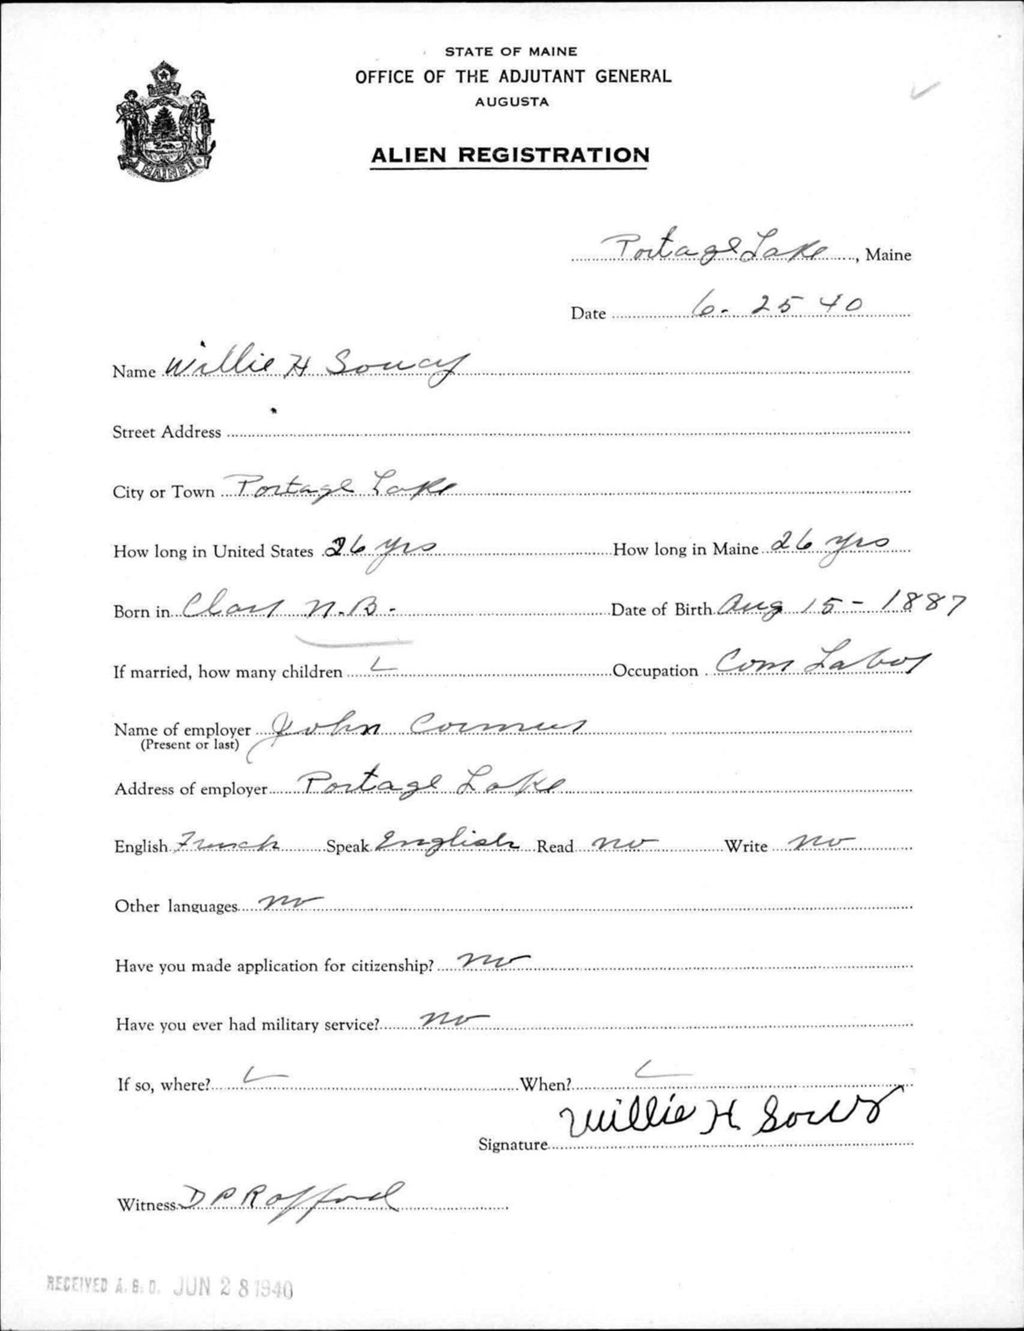 STATE OF MAINE
OFFICE OF THE ADJUTANT GENERAL
AUGUSTA
ALIEN REGISTRATION
MAINE
Portage Lake, Maine
Date 6. 25 40
Name Willie H Soucy
Street Address
City or Town Portage Lake
How long in United States 26 yrs How long in Maine 26 yrs
Born in N.B. Date of Birth Aug 15 - 1887
If married, how many children Occupation Com Labor
Name of employer John
(Present or last)
Address of employer Portage Lake
English French Speak English Read no Write no
Other languages no
Have you made application for citizenship? no
Have you ever had military service? no
If so, where? When?
Signature Willie H
Witness D P Rafford
RECEIVED A. G. O. JUN 28 1940